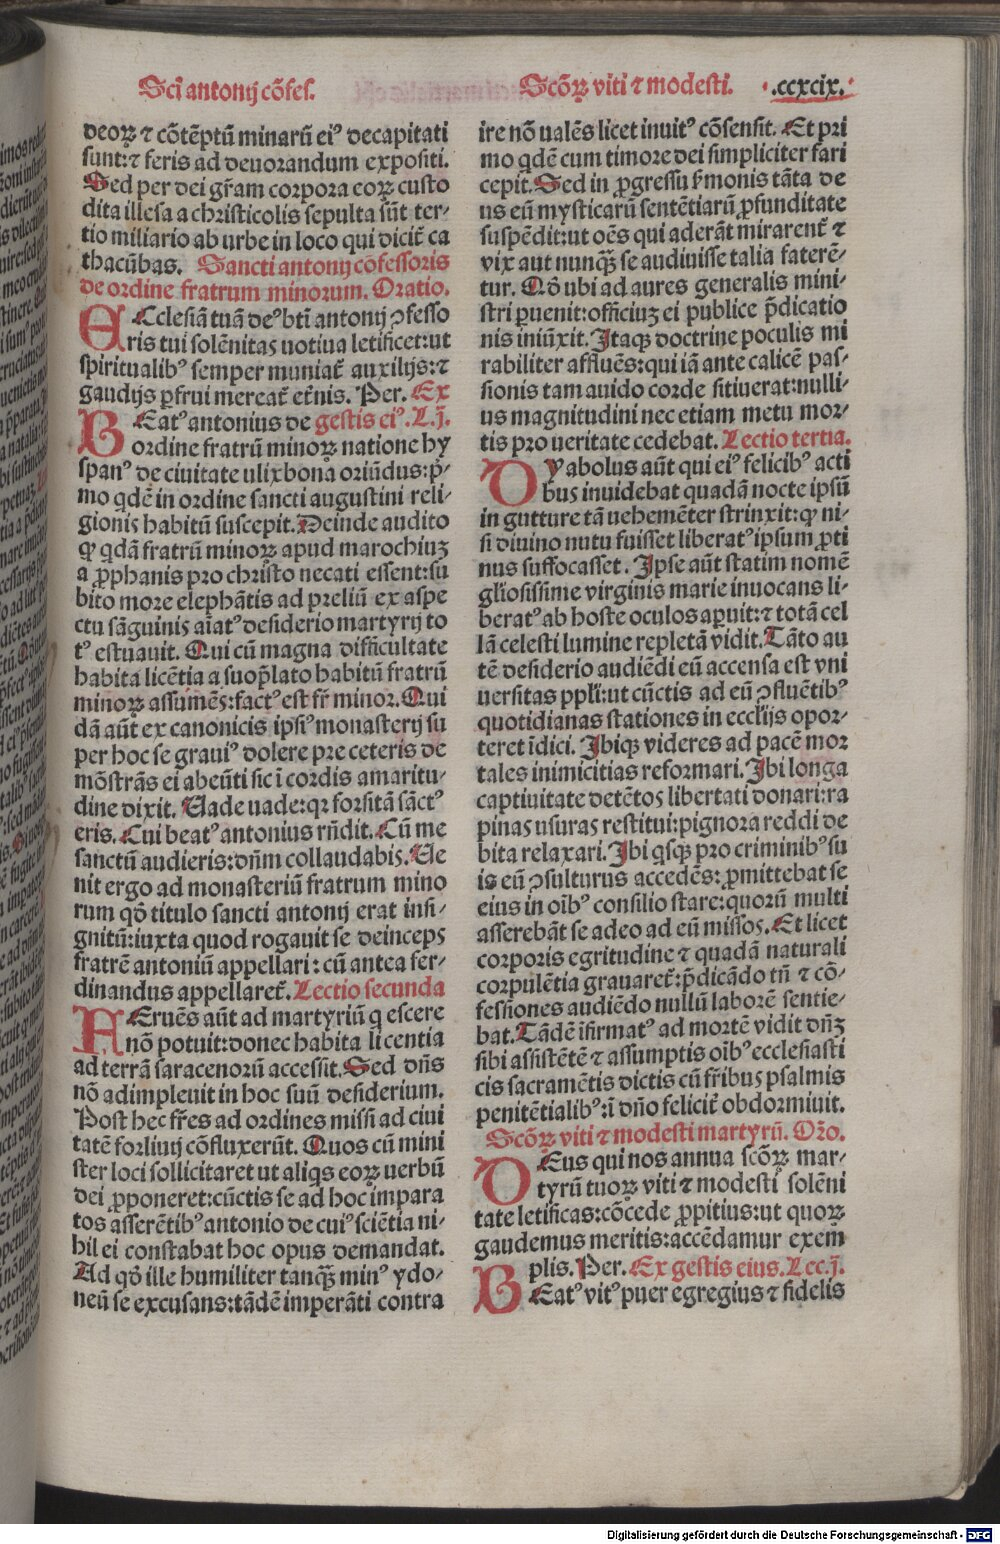 Sci antonij cõfes.
Scõꝝ viti ⁊ modesti. .ccxcix.
deoꝝ ⁊ cõtẽptũ minarũ eiꝰ decapitati
sunt:⁊ feris ad deuorandum expositi.
Sed per dei gr̃am corpora eoꝝ custo
dita illesa a christicolis sepulta sũt ter⸗
tio miliario ab urbe in loco qui dicit᷑ ca
thacũbas. Sancti antonij cõfessoris
de ordine fratrum minorum. Oratio.
ECclesiã tuã deꝰ btĩ antonij ꝯfesso
ris tui solẽnitas uotiua letificet:ut
spiritualibꝰ semper muniat᷑ auxilijs:⁊
gaudijs ꝑfrui mereat᷑ et̃nis. Per. Ex
BEatꝰ antonius de gestis eiꝰ. L.j.
ordine fratrũ minoꝝ natione hy
spanꝰ de ciuitate ulixbona oriũdus:p̃⸗
mo qdẽ in ordine sancti augustini reli⸗
gionis habitũ suscepit. Deinde audito
ꝙ qdã fratrũ minoꝝ apud marochiuꝫ
a ꝓphanis pro christo necati essent:su
bito more elephãtis ad preliũ ex aspe
ctu sãguinis aĩatꝰ desiderio martyrij to
tꝰ estuauit. Qui cũ magna difficultate
habita licẽtia a suop̃lato habitũ fratrũ
minoꝝ assumẽs:factꝰ est fr̃ minor. Qui
dã aũt ex canonicis ipsiꝰ monasterij su
per hoc se grauiꝰ dolere pre ceteris de
mõstrãs ei abeũti sic ĩ cordis amaritu⸗
dine dixit. Uade uade:qꝛ forsitã sãctꝰ
eris. Cui beatꝰ antonius rñdit. Cũ me
sanctũ audieris:dñm collaudabis. Ue
nit ergo ad monasteriũ fratrum mino
rum qõ titulo sancti antonij erat insi⸗
gnitũ:iuxta quod rogauit se deinceps
fratrẽ antoniũ appellari: cũ antea fer⸗
dinandus appellaret᷑. Lectio secunda
FEruẽs aũt ad martyriũ q escere
nõ potuit:donec habita li centia
ad terrã saracenorũ accessit. Sed dñs
nõ adimpleuit in hoc suũ desiderium.
Post hec fr̃es ad ordines missi ad ciui
tatẽ forliuij cõfluxerũt. Quos cũ mini
ster loci sollicitaret ut aliqs eoꝝ uerbũ
dei ꝓponeret:cũctis se ad hoc impara
tos asserẽtibꝰ antonio de cuiꝰ sciẽtia ni⸗
hil ei constabat hoc opus demandat.
Ad qõ ille humiliter tanqꝫ̃ minꝰ ydo⸗
neũ se excusans:tãdẽ imperãti contra
ire nõ ualẽs licet inuitꝰ cõsensit. Et pri
mo qdẽ cum timore dei simpliciter fari
cepit. Sed in ꝓgressu s̃monis tãta de
us eũ mysticarũ sentẽtiarũ ꝓfunditate
suspẽdit:ut oẽs qui aderãt mirarent᷑ ⁊
vix aut nunqꝫ̃ se audiuisse talia faterẽ⸗
tur. Qõ ubi ad aures generalis mini⸗
stri ꝑuenit:officiuꝫ ei publice p̃dicatio
nis iniũxit. Itaqꝫ doctrine poculis mi
rabiliter affluẽs:qui iã ante calicẽ pas⸗
sionis tam auido corde sitiuerat:nulli⸗
us magnitudini nec etiam metu mor⸗
tis pro ueritate cedebat. Lectio tertia.
DYabolus aũt qui eiꝰ felicibꝰ acti
bus inuidebat quadã nocte ipsũ
in gutture tã uehemẽter strinxit:ꝙ ni⸗
si diuino nutu fuisset liberatꝰ ipsum ꝓti
nus suffocasset. Ipse aũt statim nomẽ
gl̃iosissime virginis marie inuocans li⸗
beratꝰ ab hoste oculos aꝑuit:⁊ totã cel
lã celesti lumine repletã vidit. Tãto au
tẽ desiderio audiẽdi eũ accensa est vni
uersitas pp̃li:ut cũctis ad eũ ꝯfluẽtibꝰ
quotidianas stationes in eccl̃ijs opor⸗
teret ĩdici. Ibiqꝫ videres ad pacẽ mor
tales inimicitias reformari. Ibi longa
captiuitate detẽtos libertati donari:ra
pinas usuras restitui:pignora reddi de
bita relaxari. Ibi qsqꝫ pro criminibꝰ su
is eũ ꝯsulturus accedẽs: ꝓmittebat se
eius in oĩbꝰ consilio stare:quorũ multi
asserebãt se adeo ad eũ missos. Et licet
corporis egritudine ⁊ quadã naturali
corpulẽtia grauaret᷑:p̃dicãdo tñ ⁊ cõ⸗
fessiones audiẽdo nullũ laborẽ sentie⸗
bat. Tãdẽ ĩfirmatꝰ ad mortẽ vidit dñꝫ
sibi assistẽtẽ ⁊ assumptis oĩbꝰ ecclesiasti
cis sacramẽtis dictis cũ fr̃ibus psalmis
penitẽtialibꝰ:ĩ dño felicit᷑ obdormiuit.
Scõꝝ viti ⁊ modesti martyrũ. Oꝛ̃o.
DEus qui nos annua scõꝝ mar⸗
tyrũ tuoꝝ viti ⁊ modesti solẽni
tate letificas:cõcede ꝓpitius:ut quoꝝ
gaudemus meritis:accẽdamur exem
plis. Per. Ex gestis eius. Lec.j.
BEatꝰ vitꝰ puer egregius ⁊ fidelis
Digitalisierung gefördert durch die Deutsche Forschungsgemeinschaft - DFG